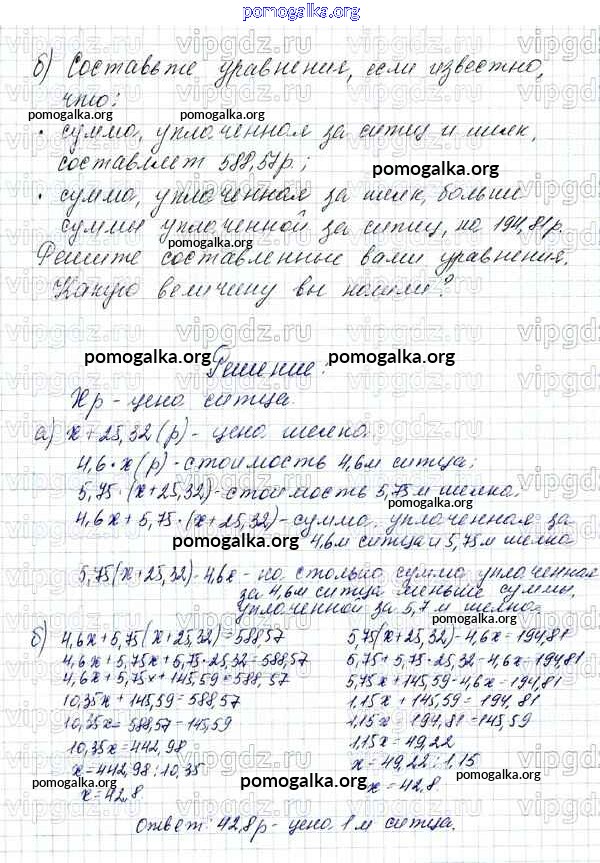 pomogalka.org
б) Составьте уравнения, если известно,
что:
pomogalka.org
• сумма, уплаченная за ситец и шелк,
составляет 588,57р.;
pomogalka.org
• сумма, уплаченная за шелк, больше
суммы уплаченной за ситец, на 194,81р.
pomogalka.org
Решите составленные вами уравнения.
Какую величину вы нашли?
pomogalka.org
pomogalka.org Решение: pomogalka.org
Хр - цена ситца.
pomogalka.org
а) х+25,32(р) - цена шелка.
4,6·х(р) - стоимость 4,6м ситца;
pomogalka.org
5,75·(х+25,32) - стоимость 5,75м шелка.
4,6х+5,75·(х+25,32) - сумма, уплаченная за
4,6м ситца и 5,75м шелка
pomogalka.org
5,75(х+25,32)-4,6х - на столько сумма уплаченная
за 4,6м ситца меньше суммы,
уплаченной за 5,7м шелка.
pomogalka.org
б) 4,6х+5,75(х+25,32)=588,57
4,6х+5,75х+5,75·25,32=588,57
4,6х+5,75х+145,59=588,57
10,35х+145,59=588,57
10,35х=588,57-145,59
10,35х=442,98
х=442,98:10,35
х=42,8.
5,75(х+25,32)-4,6х=194,81
5,75+5,75·25,32-4,6х=194,81
5,75х+145,59-4,6х=194,81
1,15х+145,59=194,81
1,15х=194,81-145,59
1,15х=49,22
х=49,22:1,15
х=42,8.
pomogalka.org
pomogalka.org
pomogalka.org
Ответ: 42,8р - цена 1м ситца.
pomogalka.org